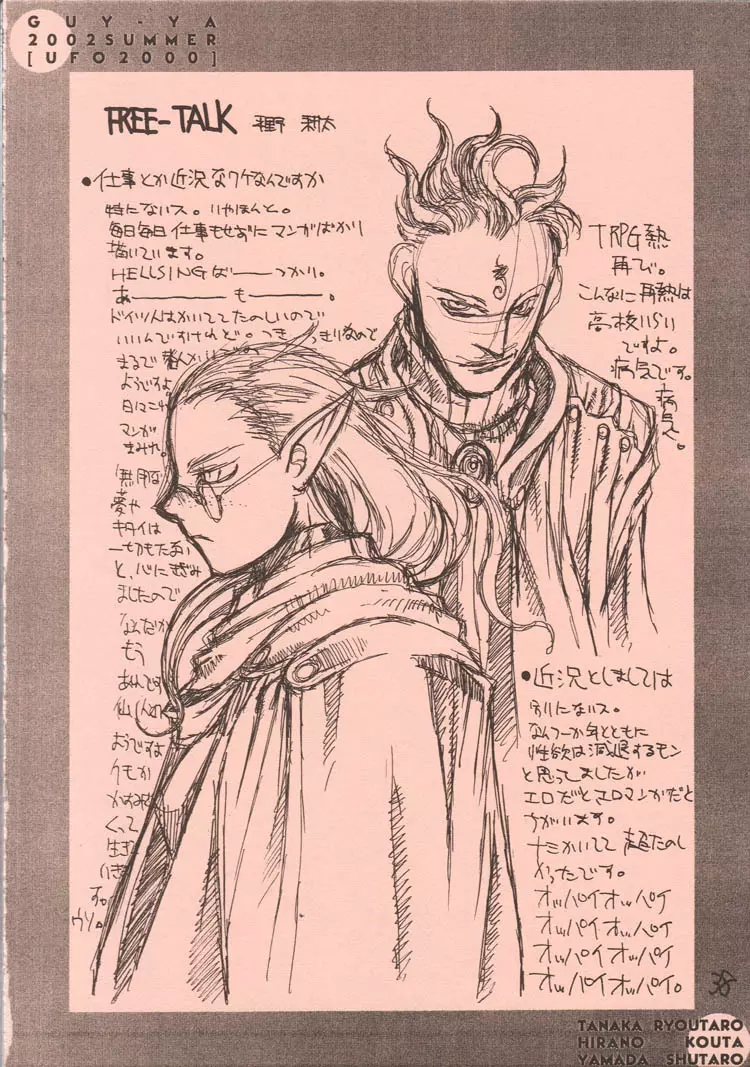 GUY-YA
2002SUMMER
[UFO2000]
FREE-TALK 平野 耕太
●仕事とか近況なワケなんですか
特にないス。いやほんと。
毎日毎日仕事もせずにマンガばかり
描いています。
HELLSINGば――つかり。
あ――――も――――。
ドイツ人はかいててたのしいので
いいんですけれど。つきっきりなので
まるで
ようですよ
日々これ
マンガ
まみれ。
夢や
キタイは
一切もたない
と、心にきざみ
ましたので
なんだか
もう
仙人の
ようですよ
クモか
かすみを
くって
生き
いき
す。
ウソ。
TRPG熱
再び。
こんなに再熱は
高校いらい
ですよ。
病気です。
病
気。
●近況としましては
別にないス。
なんつーか年とともに
性欲は減退するモン
と思ってましたが
エロだとエロマンガだと
ちがいます。
ナミかいてて超たのし
かったです。
オッパイオッパイ
オッパイオッパイ
オッパイオッパイ
オッパイオッパイ。
38
TANAKA RYOUTARO
HIRANO KOUTA
YAMADA SHUTARO